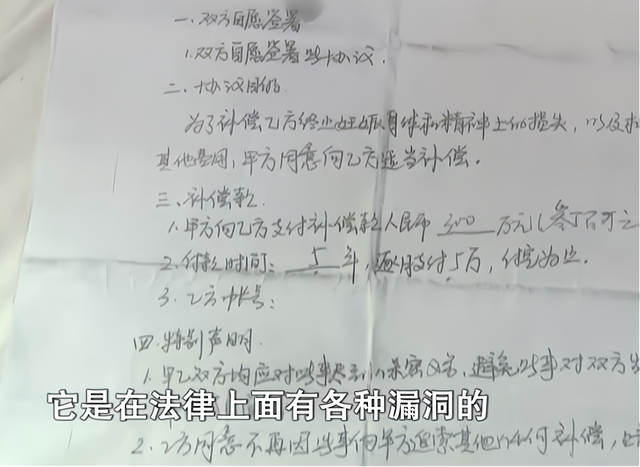 一.双方自愿签署
1.双方自愿签署此协议.
二.协议目的
为了补偿乙方终止妊娠身体和精神上的损失,以及
其他费用,甲方同意向乙方适当补偿。
三.补偿款
1.甲方向乙方支付补偿款人民币 300 万元(叁百万元
2.付款时间: 5 年,逐月支付5万,付完为止。
3.乙方帐号:
四.特别声明.
1.甲乙双方均应对此事尽到保密义务,避免此事对双方
它是在法律上面有各种漏洞的
2.乙方同意不再因此事向甲方追索其他任何补偿,